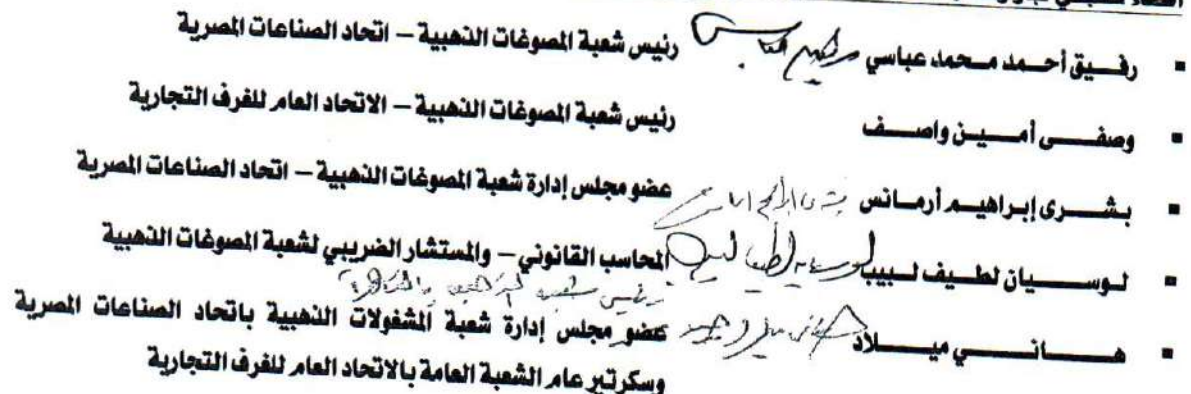 ▪ رفيق أحمد محمد عباسي رئيس شعبة المصوغات الذهبية – اتحاد الصناعات المصرية
▪ وصفى أمين واصف رئيس شعبة المصوغات الذهبية – الاتحاد العام للغرف التجارية
▪ بشرى إبراهيم أرمانس عضو مجلس إدارة شعبة المصوغات الذهبية – اتحاد الصناعات المصرية
▪ لوسيان لطيف لبيب لوسيان لطيف لبيب المحاسب القانوني – والمستشار الضريبي لشعبة المصوغات الذهبية
▪ هاني ميلاد عضو مجلس إدارة شعبة المشغولات الذهبية باتحاد الصناعات المصرية
وسكرتير عام الشعبة العامة بالاتحاد العام للغرف التجارية